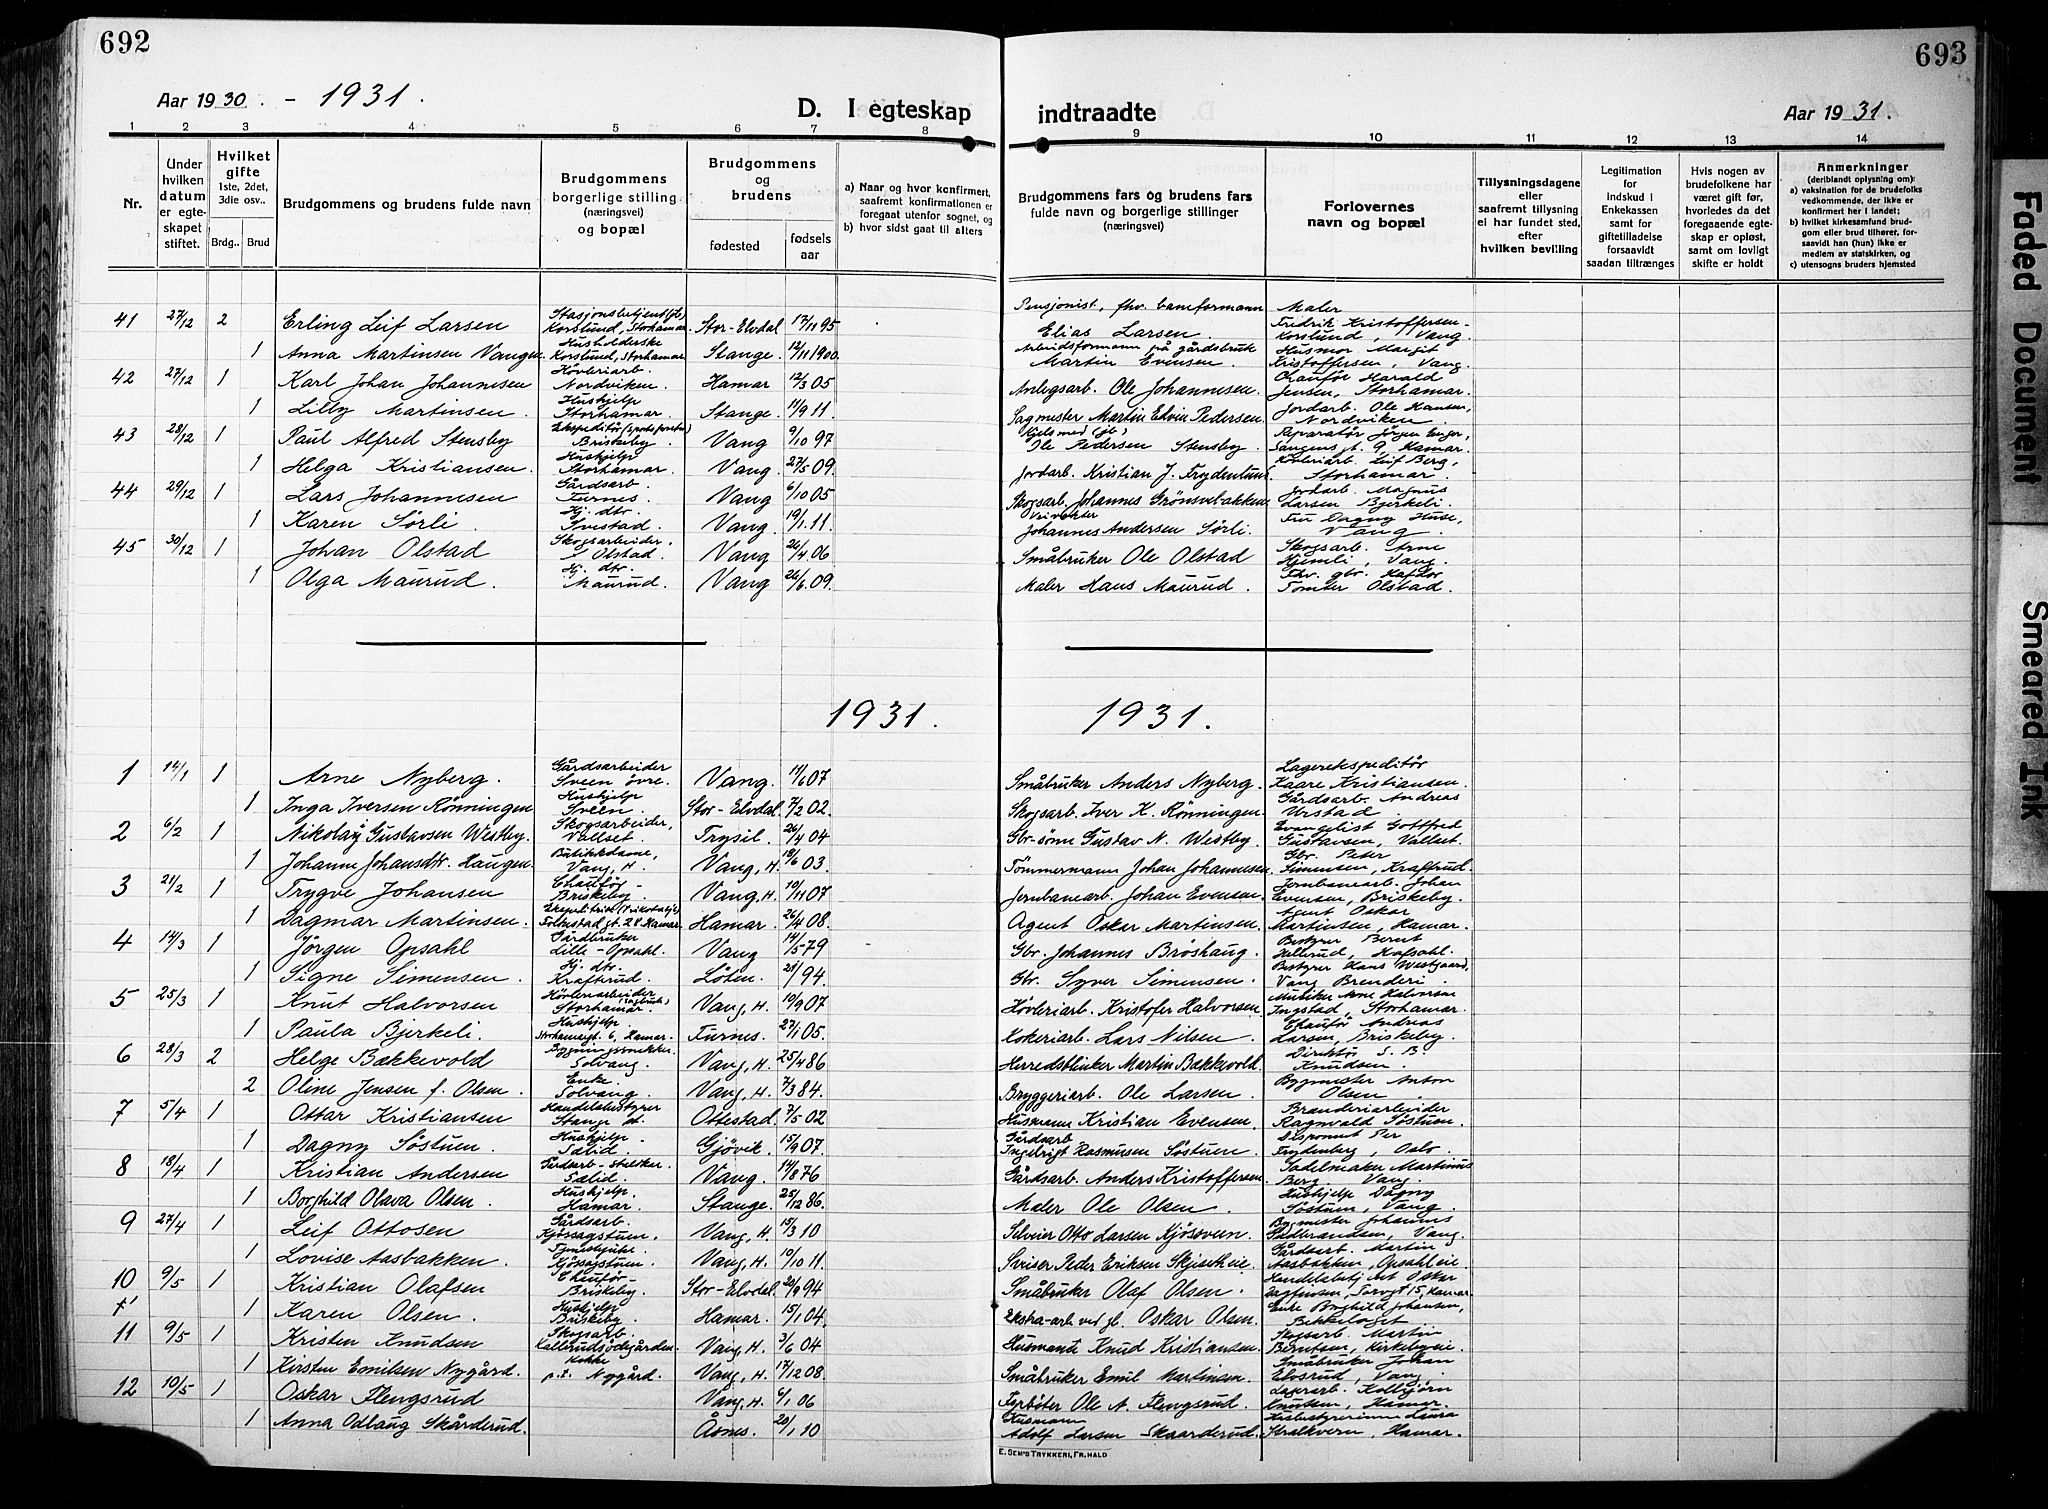 692
693
Aar 1930. - 1931.
D. I egteskap indtraadte
Aar 1931.
1 2 3 4 5 6 7 8 9 10 11 12 13 14
Nr.
Under hvilken datum er egteskapet stiftet.
Hvilket gifte 1ste, 2det, 3die osv..
Brdg.. Brud
Brudgommens og brudens fulde navn
Brudgommens borgerlige stilling (næringsvei) og bopæl
Brudgommens og brudens
fødested
fødselsaar
a) Naar og hvor konfirmert, saafremt konfirmationen er foregaat utenfor sognet, og
b) hvor sidst gaat til alters
Brudgommens fars og brudens fars fulde navn og borgerlige stillinger (næringsvei)
Forlovernes navn og bopæl
Tillysningsdagene eller saafremt tillysning ei har fundet sted, efter hvilken bevilling
Legitimation for indskud i Enkekassen samt for giftetilladelse forsaavidt saadan tiltrænges
Hvis nogen av brudefolkene har været gift før, hvorledes da det foregaaende egteskap er opløst, samt om lovligt skifte er holdt
Anmerkninger (deriblandt oplysning om):
a) vaksination for de brudefolks vedkommende, der ikke er konfirmert her i landet;
b) hvilket kirkesamfund brudgom eller brud tilhører, forsaavidt han (hun) ikke er medlem av statskirken, og
c) utensogns bruders hjemsted
41 27/12 2 Erling Leif Larsen Stasjonsbetjent Korslund, Storhamar Stor-Elvdal 17/11 95 Pensjonist, fhv. baneformann Elias Larsen Maler Fredrik Kristoffersen Korslund, Vang
1 Anna Martinsen Vangen Husholderske Korslund, Storhamar Stange 12/11 1900 Arbeidsformann på gårdsbruk Martin Evensen Husmor Margit Kristoffersen, Vang
42 27/12 1 Karl Johan Johannesen Høvleriarb. Nordviken Hamar 12/3 05 Anlegsarb. Ole Johannesen Chaufør Harald Jensen, Storhamar
1 Lilly Martinsen Hushjelp Storhamar Stange 11/9 11 Sagmester Martin Edvin Pedersen Jordarb. Ole Hansen, Nordviken
43 28/12 1 Paul Alfred Stensby Ekspeditør Briskeby Vang 9/10 97 Ole Pedersen Stensby Reparatør Jørgen Enger, Hamar
1 Helga Kristiansen Hushjelp Storhamar Vang 27/5 09 Jordarb. Kristian J. Frydenlund Høvleriarb. Leif Berg, Storhamar
44 29/12 1 Lars Johannesen Gårdsarb. Furnes Vang 6/10 05 Skogsarb. Johannes Grønsvebakken Jordarb. Magnus Larsen Bjerkeli
1 Karen Sørli Hj. dtr. Ivestad Vang 19/1 11 Johannes Andersen Sørli Fru Dagny Huse, Vang
45 30/12 1 Johan Olstad Skogsarbeider, Olstad Vang 26/4 06 Småbruker Ole Olstad Skogsarb. Arne Hjemli, Vang
1 Olga Maurud Hj. dtr. Maurud Vang 26/6 09 Maler Hans Maurud Fhv. gbr. Tomter Olstad
1931. 1931.
1 14/1 1 Arne Nyberg Gårdsarbeider Sveen øvre Vang 11/6 07 Småbruker Anders Nyberg Lagerekspeditør Kaare Kristiansen
1 Inga Iversen Rønningen Hushjelp Sveen Stor-Elvdal 7/2 02 Skogsarb. Iver K. Rønningen Gårdsarb. Andreas Urstad
2 6/2 1 Nikolay Gustavsen Westby Skogsarbeider, Vallset Trysil 26/4 04 Gbr-sønn Gustav N. Westby Evangelist Gottfred Gustavsen, Vallset
1 Johanne Johansdtr. Haugen Butikkdame, Vang, H. Vang, H. 18/6 03 Tømmermann Johan Johannesen Gbr. Peter Simensen, Kraftrud
3 21/2 1 Trygve Johansen Chaufør Briskeby Vang, H. 10/11 07 Jernbanearb. Johan Evensen Jernbanearb. Johan Evensen, Briskeby
1 Dagmar Martinsen Folkestad gt. 24 Hamar Hamar 26/4 08 Agent Oskar Martinsen Agent Oskar Martinsen, Hamar
4 14/3 1 Jørgen Opsahl Gårdbruker Lille-Opsahl Vang 14/5 79 Gbr. Johannes Brøshaug Bestyrer Bernt Hellerud, Hafsahl
1 Signe Simensen Hj. dtr. Kraftrud Løten 94 Gbr. Syver Simensen Bestyrer Hans Westgaard, Vang Brenderi
5 25/3 1 Knut Halvorsen Høvleriarbeider Storhamar Vang, H. 10/9 07 Høvleriarb. Kristofer Halvorsen Musiker Arne Halvorsen Ingstad, Storhamar
1 Paula Bjerkeli Hushjelp Storhamargt. 6, Hamar Furnes 27/1 05 Kokeriarb. Lars Nilsen Chaufør Andreas Larsen, Briskeby
6 28/3 2 Helge Bækkevold Bygningssnekker Solvang Vang, H. 25/4 86 Herredsblinker Martin Bækkevold Direktør S. B. Knudsen
2 Oline Jensen f. Olsen Enke Solvang Vang, H. 7/3 84 Bryggeriarb. Ole Larsen Bygmester Anton Olsen
7 5/4 1 Ottar Kristiansen Handelsbestyrer Stange st. Ottestad 7/5 02 Husmann Kristian Evensen Brenderiarbeider Ragnvald Søstuen
1 Dagny Søstuen Hushjelp Sælid Gjøvik 15/9 07 Gårdsarb. Ingebrigt Rasmussen Søstuen Disponent Per Frydenberg, Oslo
8 18/4 1 Kristian Andersen Sælid Vang 14/8 76 Gårdsarb. Anders Kristoffersen Sadelmaker Martinus Berg, Vang
1 Borghild Olava Olsen Hushjelp Hamar Stange 25/12 86 Maler Ole Olsen Hushjelp Dagny Søstuen, Vang
9 27/4 1 Leif Ottosen Gårdsarb. Kjøssagstuen Vang, H. 15/3 10 Otto Larsen Kjøsveen Bygmester Johannes Gudbrandsen, Vang
1 Lovise Aasbakken Tjenestejente Kjøssagstuen Vang, H. 10/10 11 Sveiser Peder Eriksen Gårdsarb. Martin Aasbakken, Opsahleie
10 9/5 1 Kristian Olafsen Chaufør Briskeby Stor-Elvdal 20/9 94 Småbruker Olaf Olsen Handelsbetj. Oskar Dagfinsen, Torvgt 15, Hamar
1 Karen Olsen Hushjelp Briskeby Hamar 15/1 04 Ekstra-arb ved jb. Oskar Olsen Enke Borghild Johansen, Bekkelaget
11 9/5 1 Kristen Knudsen Skogsarb. Kallerudsødegården Vang, H. 3/6 04 Husmann Knud Kristiansen Skogsarb. Martin Berntsen, Kirkebyeie
1 Kirsten Emilsen Nygård Kokke p.t. Nygård Vang, H. 17/12 08 Småbruker Emil Martinsen Småbruker Johan Elvsrud, Vang
12 10/5 1 Oskar Flengsrud Vang, H. 6/1 06 Fyrbøter Ole A. Flengsrud Lagerarb. Kolbjørn Knutsen, Hamar
1 Anna Odlaug Skårderud Åsnes 20/1 10 Husmann Adolf Larsen Skaarderud Laura Stralkvern, Hamar
E. SEM'S TRYKKERI, FR.HALD
Faded Document
Smeared Ink